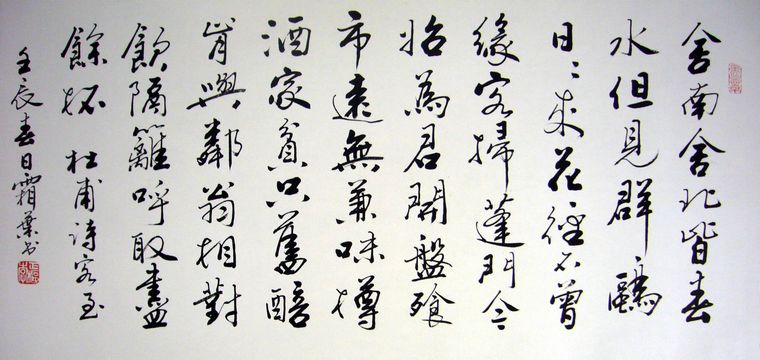 舍南舍北皆春
水但見群鷗
日〻來花徑不曾
緣客掃蓬門今
始為君開盤飧
市遠無兼味樽
酒家貧只舊醅
肯與鄰翁相對
飲隔籬呼取盡
餘杯 杜甫詩客至
壬辰春日霜葉书